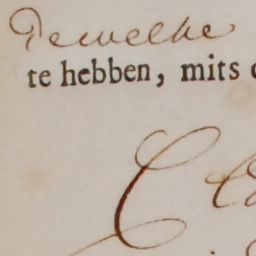 Dewelke
te hebben, mits
C